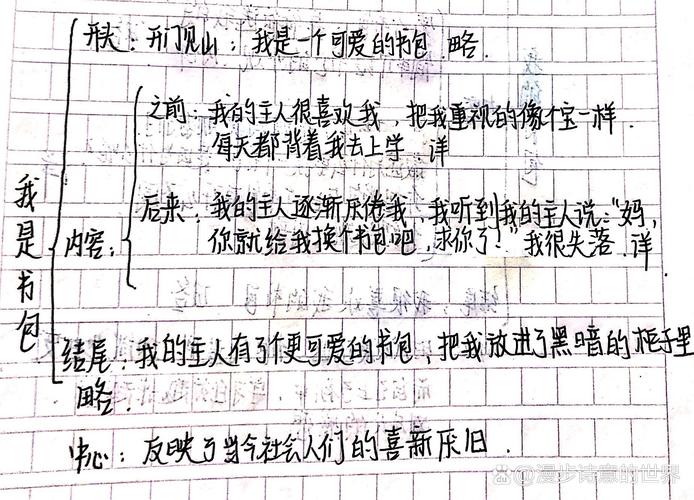 开头：开门见山：我是一个可爱的书包 略.
之前：我的主人很喜欢我，把我重视的像个宝一样.
每天都背着我去上学 详
我是书包
后来：我的主人逐渐厌倦我，我听到我的主人说："妈，
内容：
你就给我换个书包吧，求你了！"我很失落.详
结尾：我的主人有了个更可爱的书包，把我放进了黑暗的柜子里
略.
中心：反映了当今社会人们的喜新厌旧.
@漫步诗意的世界